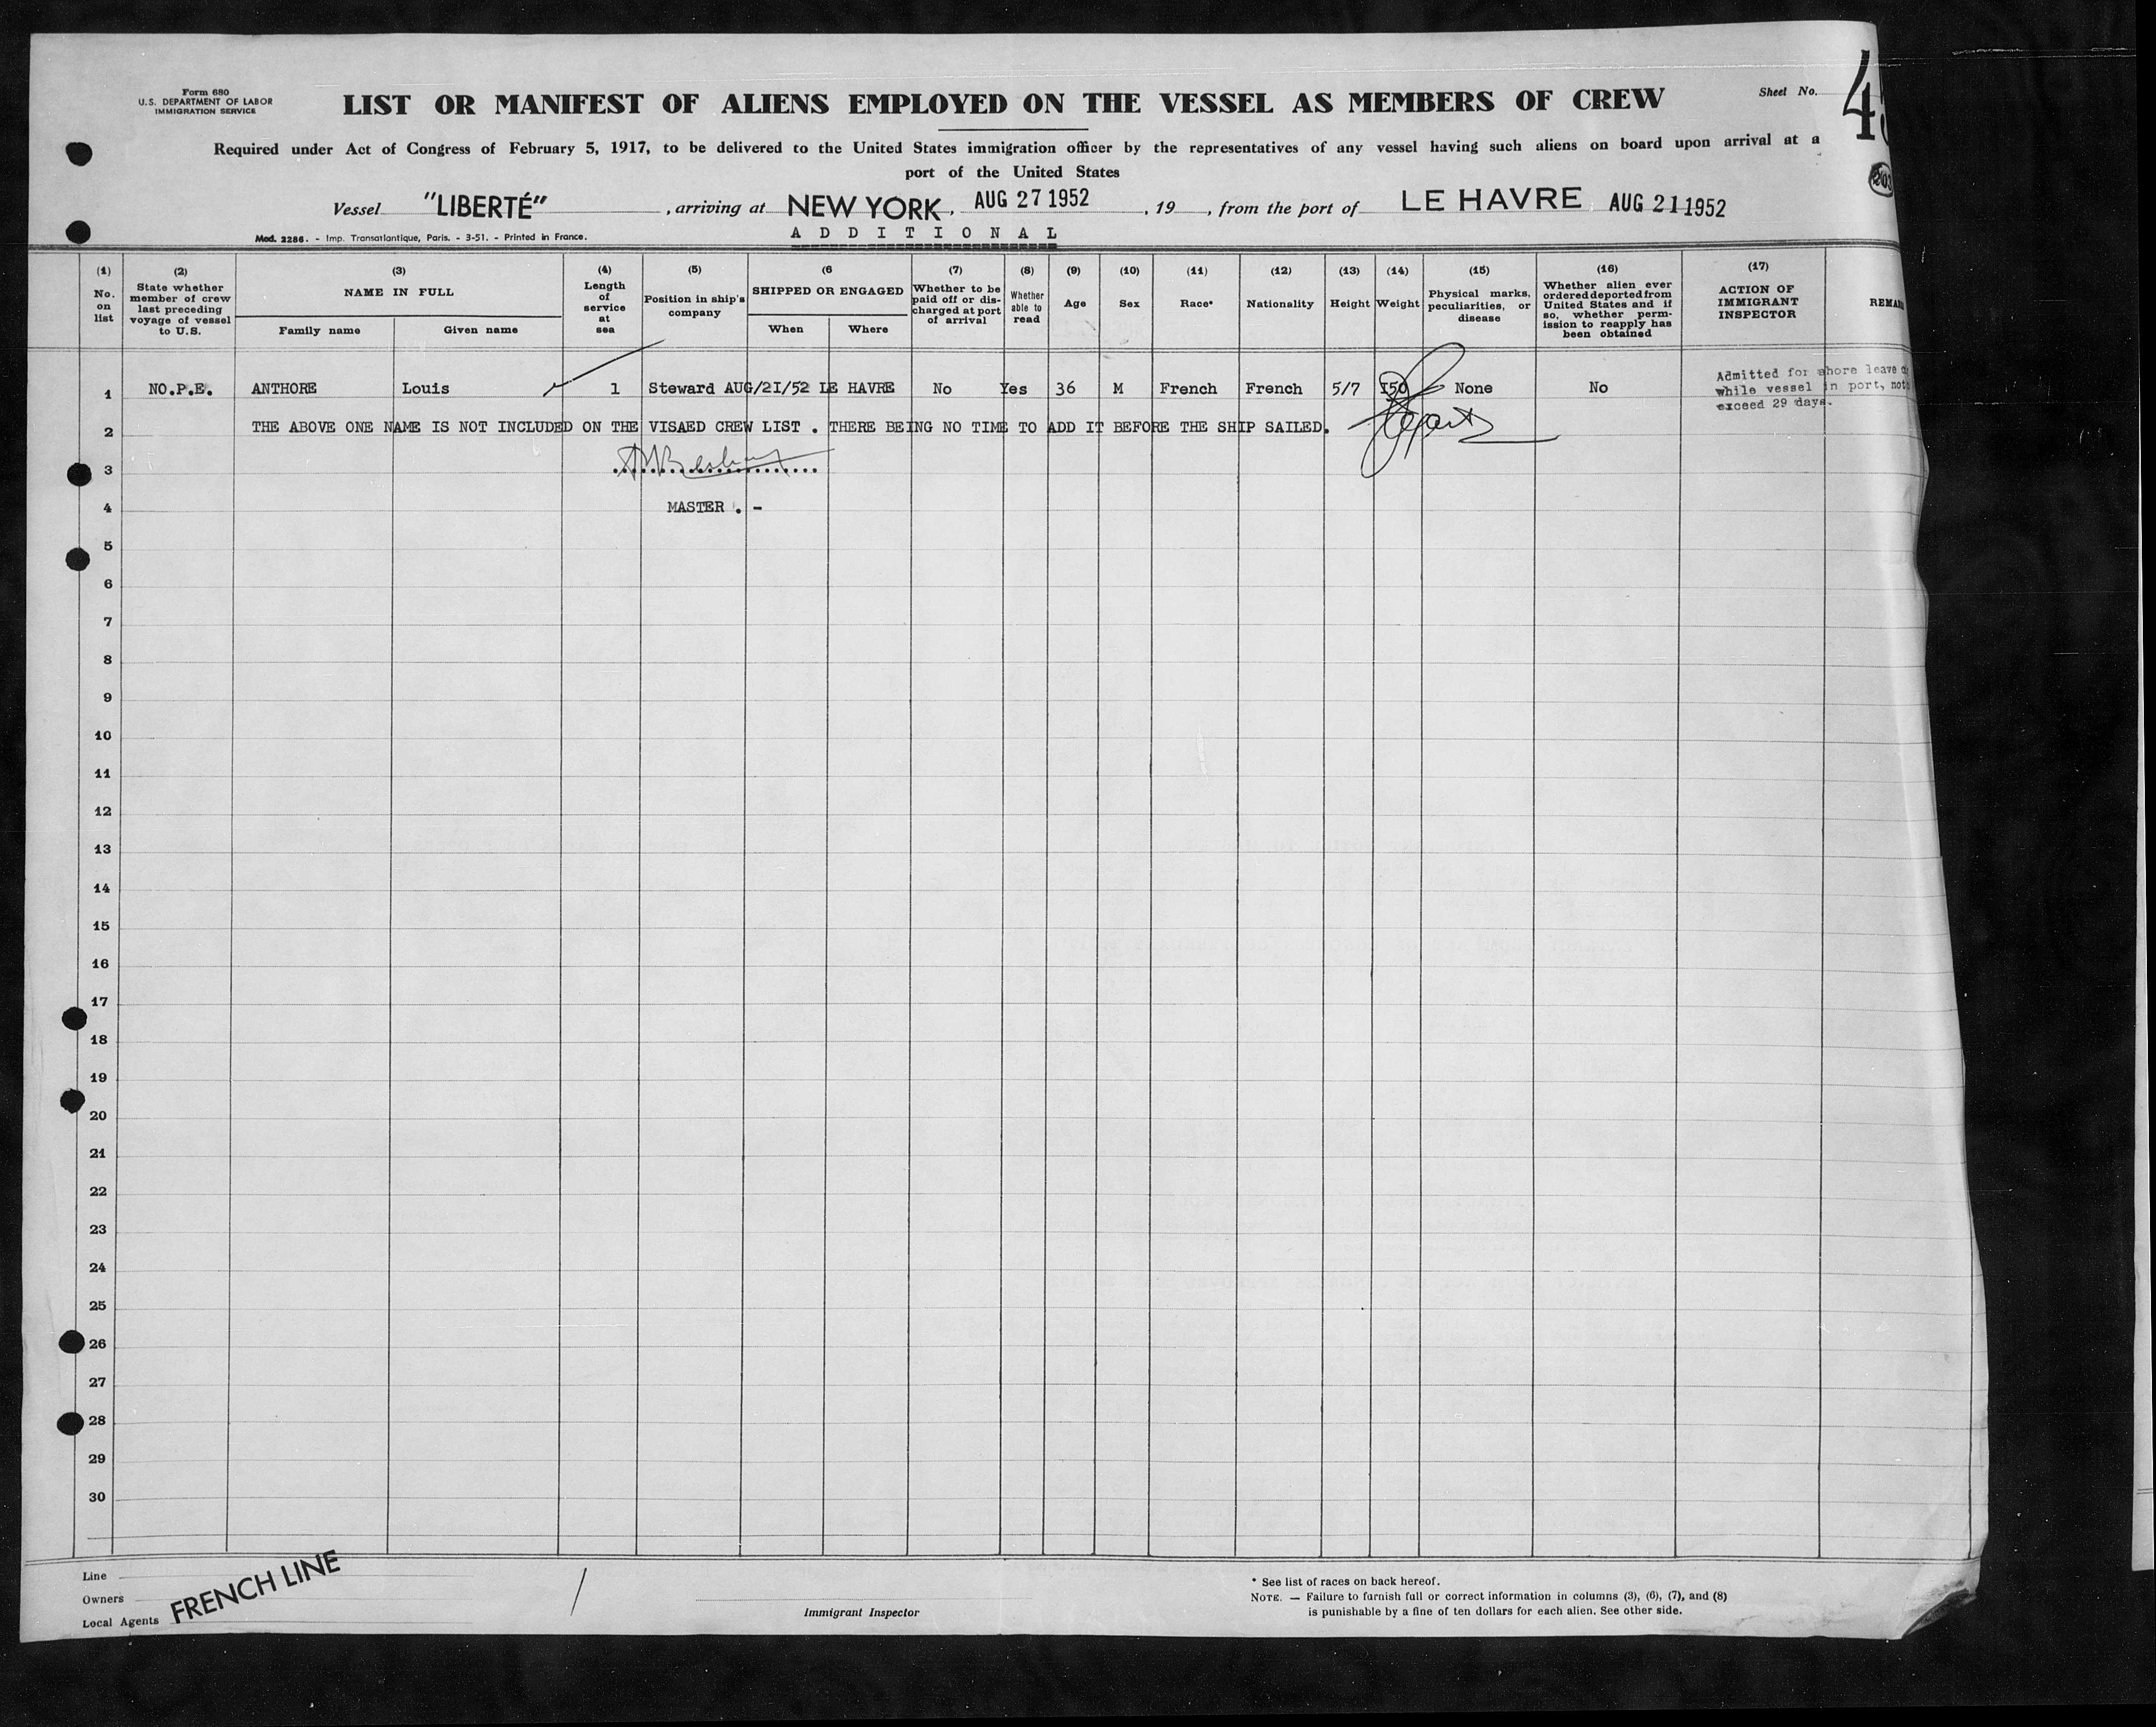 Form 680
U.S. DEPARTMENT OF LABOR
IMMIGRATION SERVICE
LIST OR MANIFEST OF ALIENS EMPLOYED ON THE VESSEL AS MEMBERS OF CREW
Sheet No.
Required under Act of Congress of February 5, 1917, to be delivered to the United States immigration officer by the representatives of any vessel having such aliens on board upon arrival at a
port of the United States
Vessel "LIBERTÉ", arriving at NEW YORK, AUG 27 1952, 19, from the port of LE HAVRE AUG 21 1952
Mod. 2286. - Imp. Transatlantique, Paris. - 3-51. - Printed in France.
ADDITIONAL
(1) No. on list
(2) State whether member of crew last preceding voyage of vessel to U.S.
(3) NAME IN FULL
Family name
Given name
(4) Length of service at sea
(5) Position in ship's company
(6 SHIPPED OR ENGAGED
When
Where
(7) Whether to be paid off or discharged at port of arrival
(8) Whether able to read
(9) Age
(10) Sex
(11) Race*
(12) Nationality
(13) Height
(14) Weight
(15) Physical marks, peculiarities, or disease
(16) Whether alien ever ordered deported from United States and if so, whether permission to reapply has been obtained
(17) ACTION OF IMMIGRANT INSPECTOR
1 NO.P.E. ANTHORE Louis 1 Steward AUG/2I/52 LE HAVRE No Yes 36 M French French 5/7 I50 None No
Admitted for shore leave
while vessel in port, not
exceed 29 days.
2 THE ABOVE ONE NAME IS NOT INCLUDED ON THE VISAED CREW LIST . THERE BEING NO TIME TO ADD IT BEFORE THE SHIP SAILED.
3
4 MASTER . -
5
6
7
8
9
10
11
12
13
14
15
16
17
18
19
20
21
22
23
24
25
26
27
28
29
30
Line
Owners
Local Agents
FRENCH LINE
Immigrant Inspector
* See list of races on back hereof.
NOTE. — Failure to furnish full or correct information in columns (3), (6), (7), and (8)
is punishable by a fine of ten dollars for each alien. See other side.